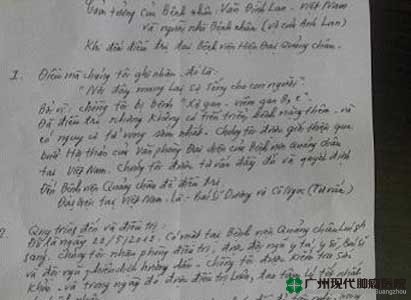 Cảm tưởng của Bệnh nhân: Văn Đình Lan - Việt Nam
và người nhà Bệnh nhân (vợ của Anh Lan)
Khi đến điều trị tại Bệnh viện Hiện Đại Quảng châu.
I. Điểm mà chúng tôi ghi nhận đó là:
"Nơi đây mang lại sự sống cho con người"
Bởi vì: chúng tôi bị Bệnh "Xơ gan - viêm gan B,
Đã điều trị nhưng không có tiến triển, bệnh nặng thêm và
có nguy cơ tử vong sớm nhất. Chúng tôi được giới thiệu qua
buổi Hội thảo của Văn phòng Đại diện của Bệnh viện Quảng châu
tại Việt Nam. Chúng tôi được tư vấn đầy đủ và quyết định
Đến Bệnh viện Quảng châu để điều trị.
Đại diện tại Việt Nam là: Bác Sĩ Dương và Cô Ngọc (Tư vấn)
2. Quy trình đến và điều trị:
Đó là ngày 22/5/2012. Có mặt tại Bệnh viện Quảng châu lúc
sáng. Chúng tôi nhận phòng điều trị, được đội ngũ y tá, y sĩ, Bác sĩ
và đội ngũ phiên dịch hướng dẫn. Chúng tôi được kiểm tra sức
khỏe. và trong ngày đó được điều trị luôn, tạo tâm lý tốt nhất
广州现代肿瘤医院
Guangzhou